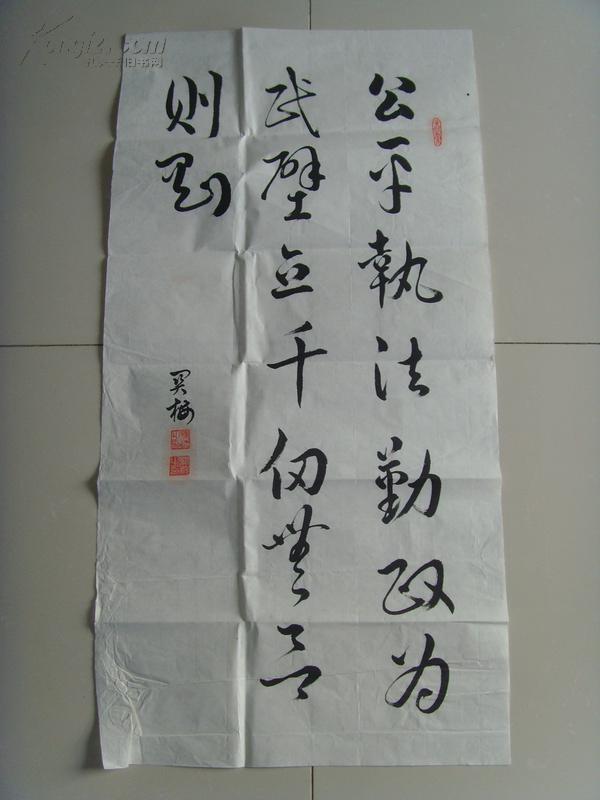 Kongfz.com
孔夫子旧书网
公平執法勤政为
民壁立千仞無欲
则刚